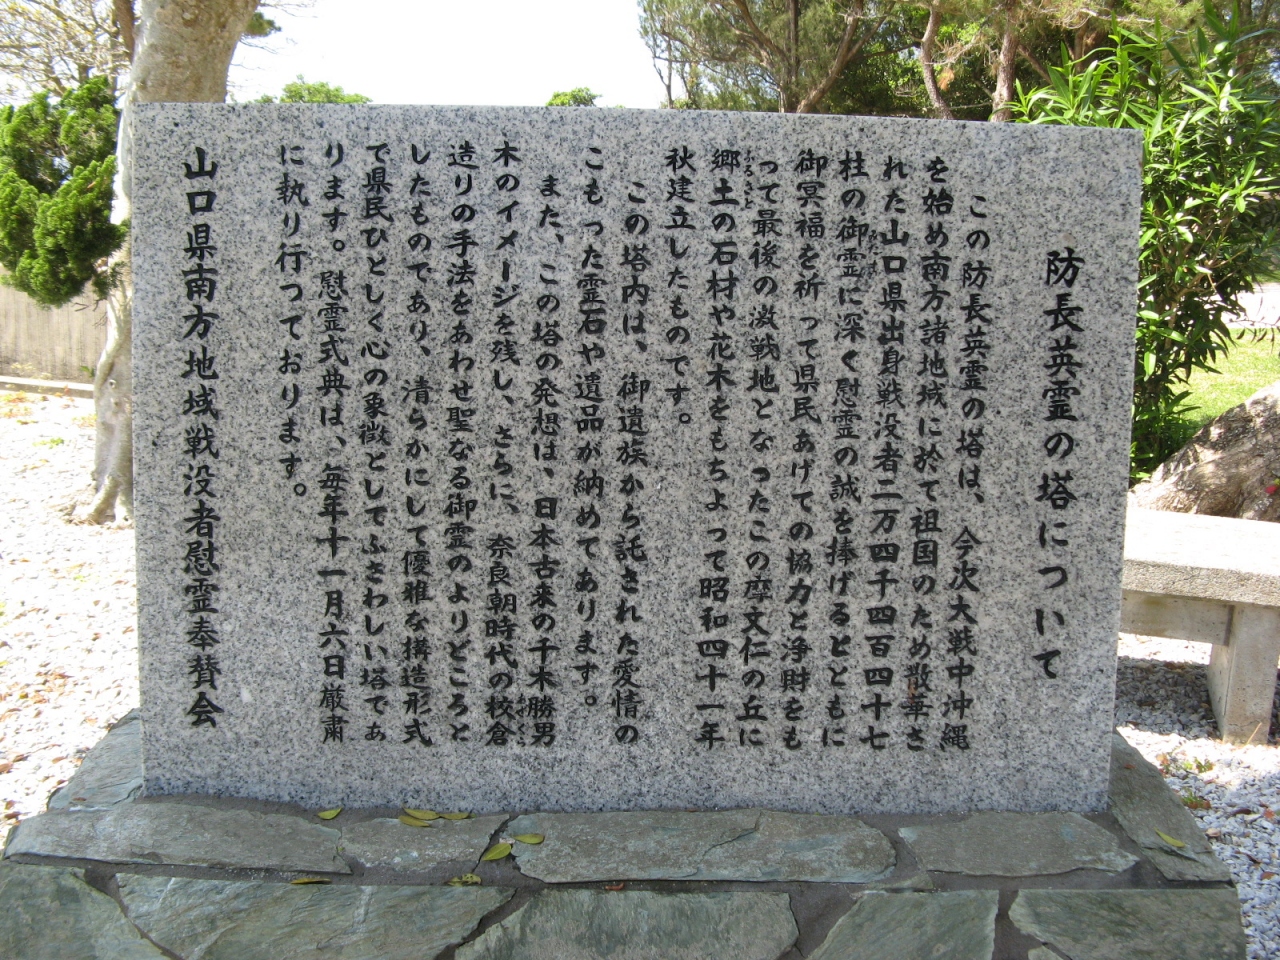 防長英霊の塔について
この防長英霊の塔は、今次大戦中沖縄
を始め南方諸地域に於て祖国のため散華さ
れた山口県出身戦没者二万四千四百四十七
柱の御霊に深く慰霊の誠を捧げるとともに
御冥福を祈って県民あげての協力と浄財をも
って最後の激戦地となったこの摩文仁の丘に
郷土の石材や花木をもちよって昭和四十一年
秋建立したものです。
この塔内は、御遺族から託された愛情の
こもった霊石や遺品が納めてあります。
また、この塔の発想は、日本古来の千木勝男
木のイメージを残し、さらに、奈良朝時代の校倉
造りの手法をあわせ聖なる御霊のよりどころと
したものであり、清らかにして優雅な構造形式
で県民ひとしく心の象徴としてふさわしい塔であ
ります。慰霊式典は、毎年十一月六日厳粛
に執り行っております。
山口県南方地域戦没者慰霊奉賛会